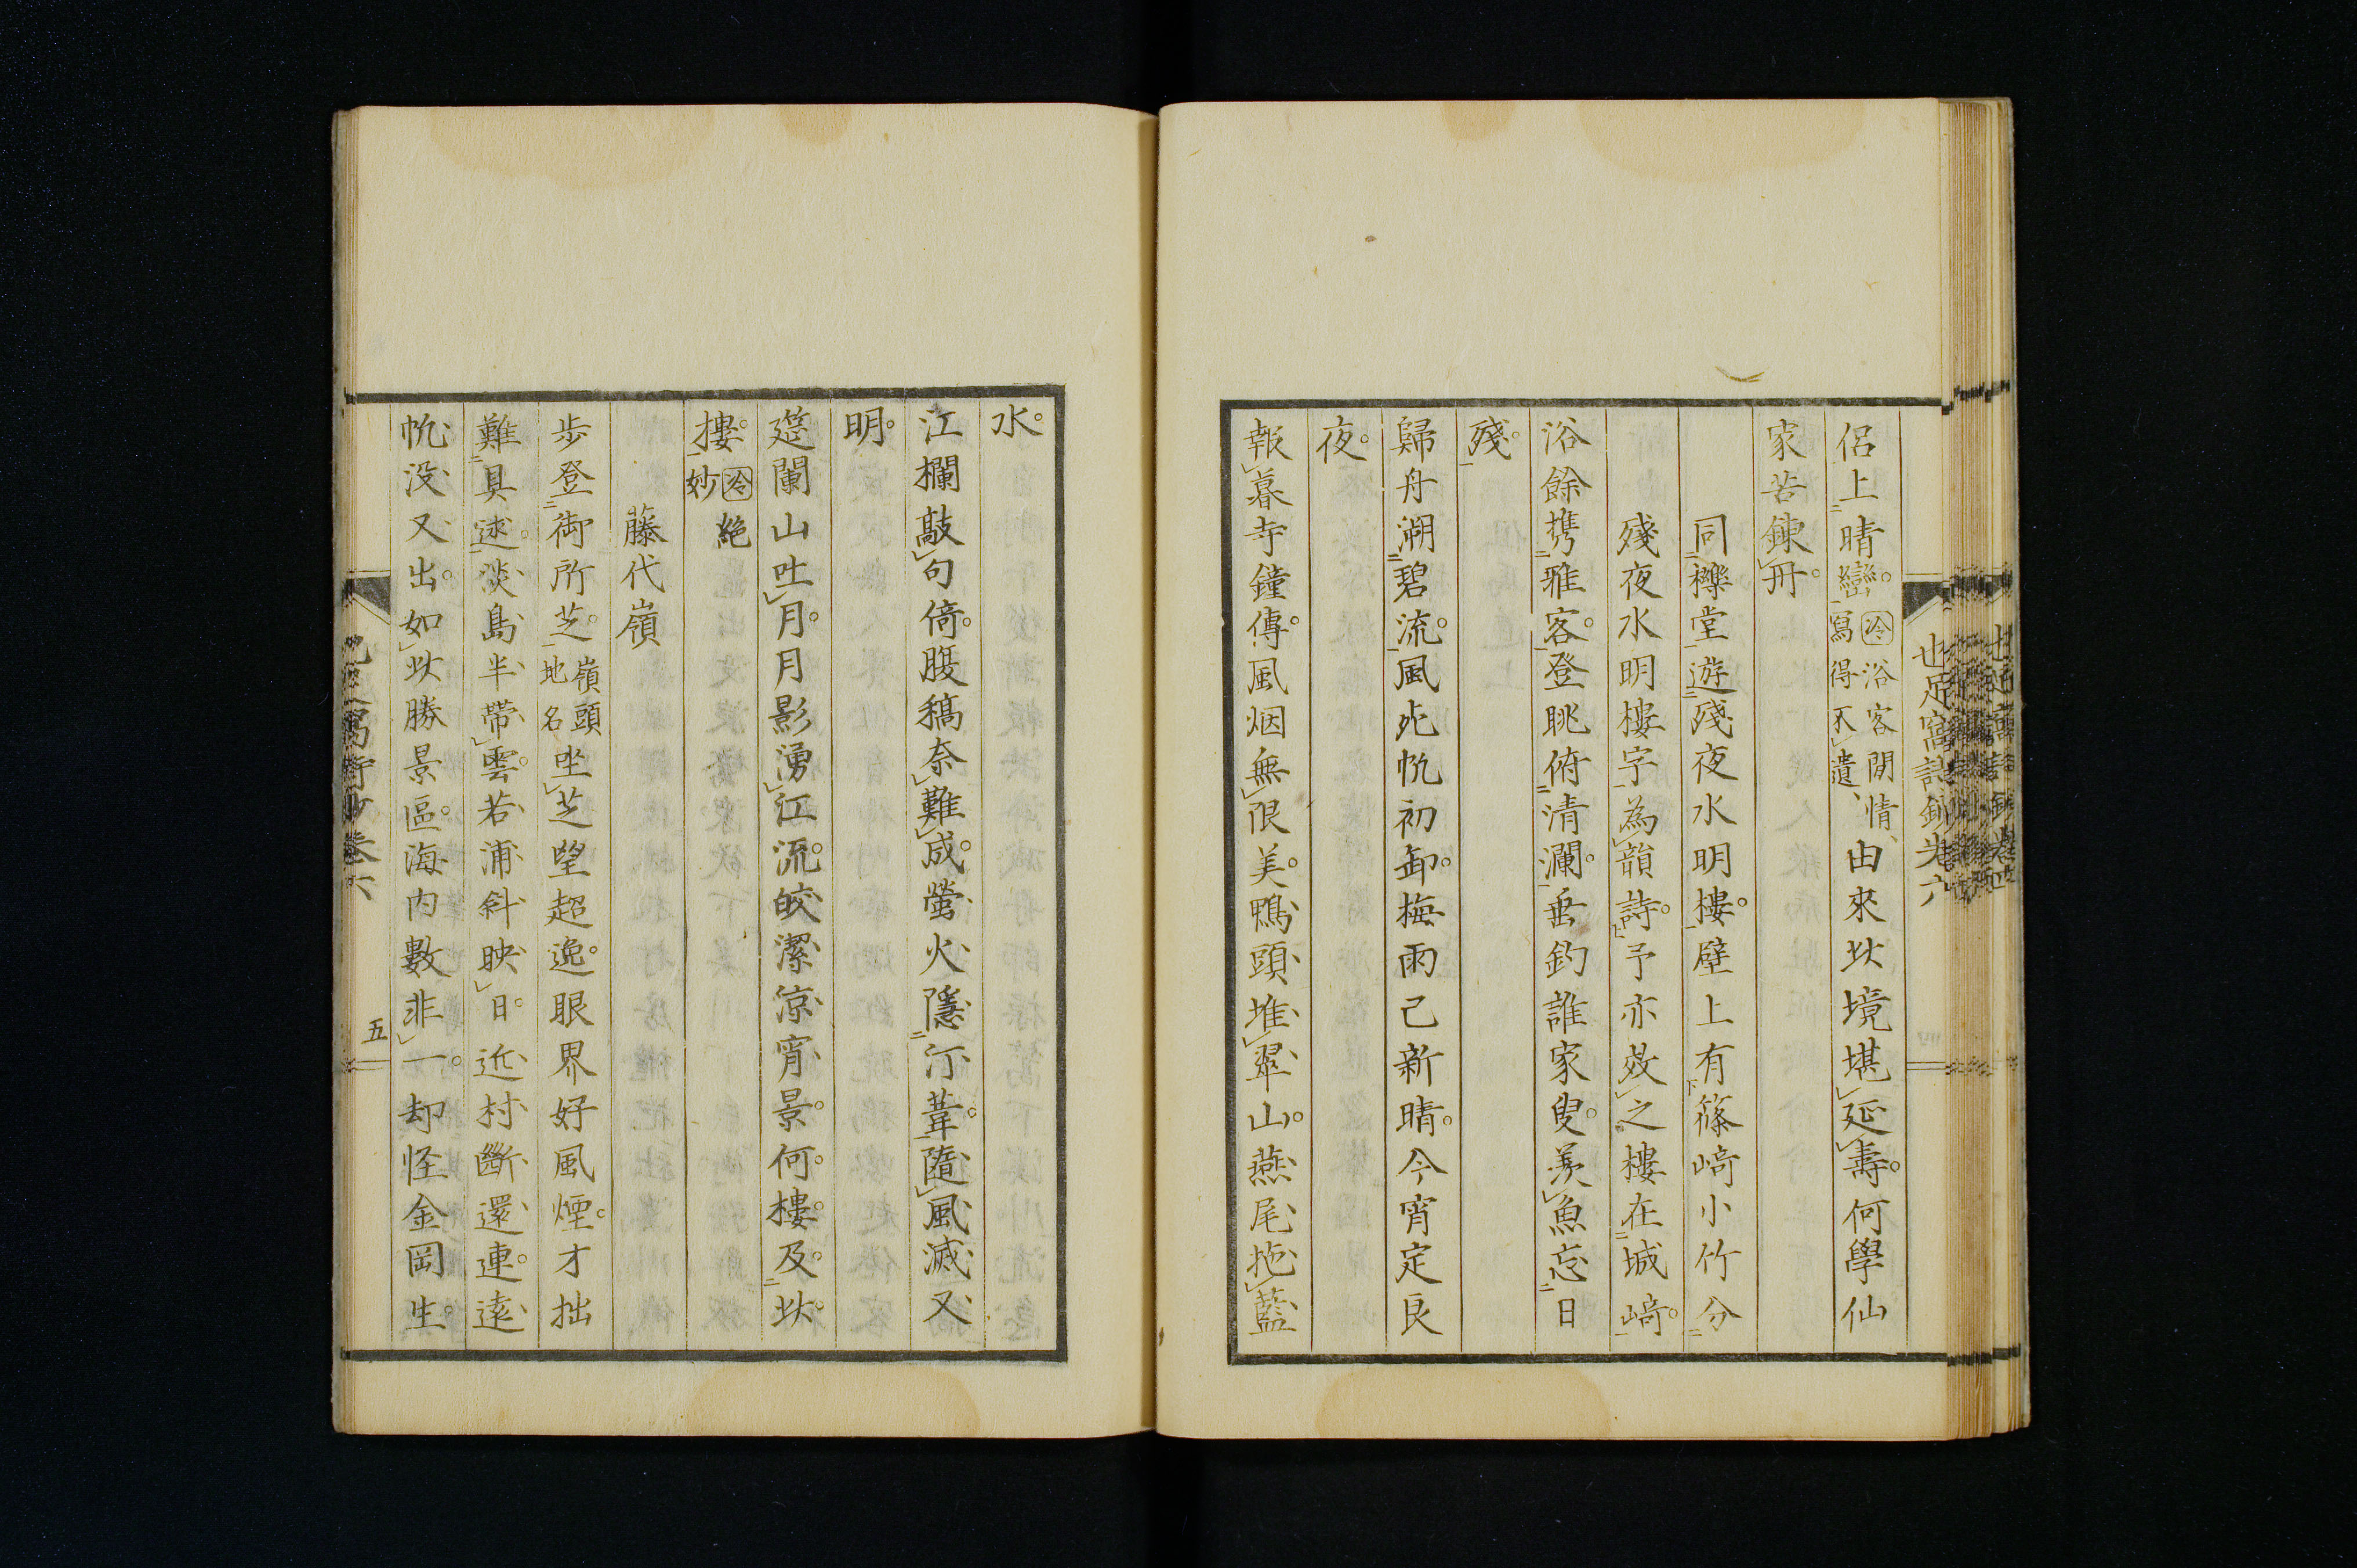 侶上晴巒。冷浴客閒情、寫得不遺、由來此境堪延壽。何學仙
家苦鍊丹。
同櫟堂遊殘夜水明樓。壁上有篠﨑小竹分
殘夜水明樓字為韻詩。予亦效之樓在城﨑。
浴餘携雅客。登眺俯清瀾。垂釣誰家叟。羨魚忘日
殘。
歸舟溯碧流。風死帆初卸。梅雨已新晴。今宵定良
夜。
報暮寺鐘傳。風烟無限美。鴨頭堆翠山。燕尾拖藍
水。
江欄敲句倚。腹稿奈難成。螢火隱汀葦。隨風滅又
明。
筵闌山吐月。月影湧江流。皎潔凉宵景。何樓及此
樓。冷絕妙
藤代嶺
步登御所芝。嶺頭地名坐芝望超逸。眼界好風煙。才拙
難具述。淡島半帶雲。若浦斜映日。近村斷還連。遠
帆没又出。如此勝景區。海内數非一。却怪金岡生。
也足窩詩鈔卷六
五